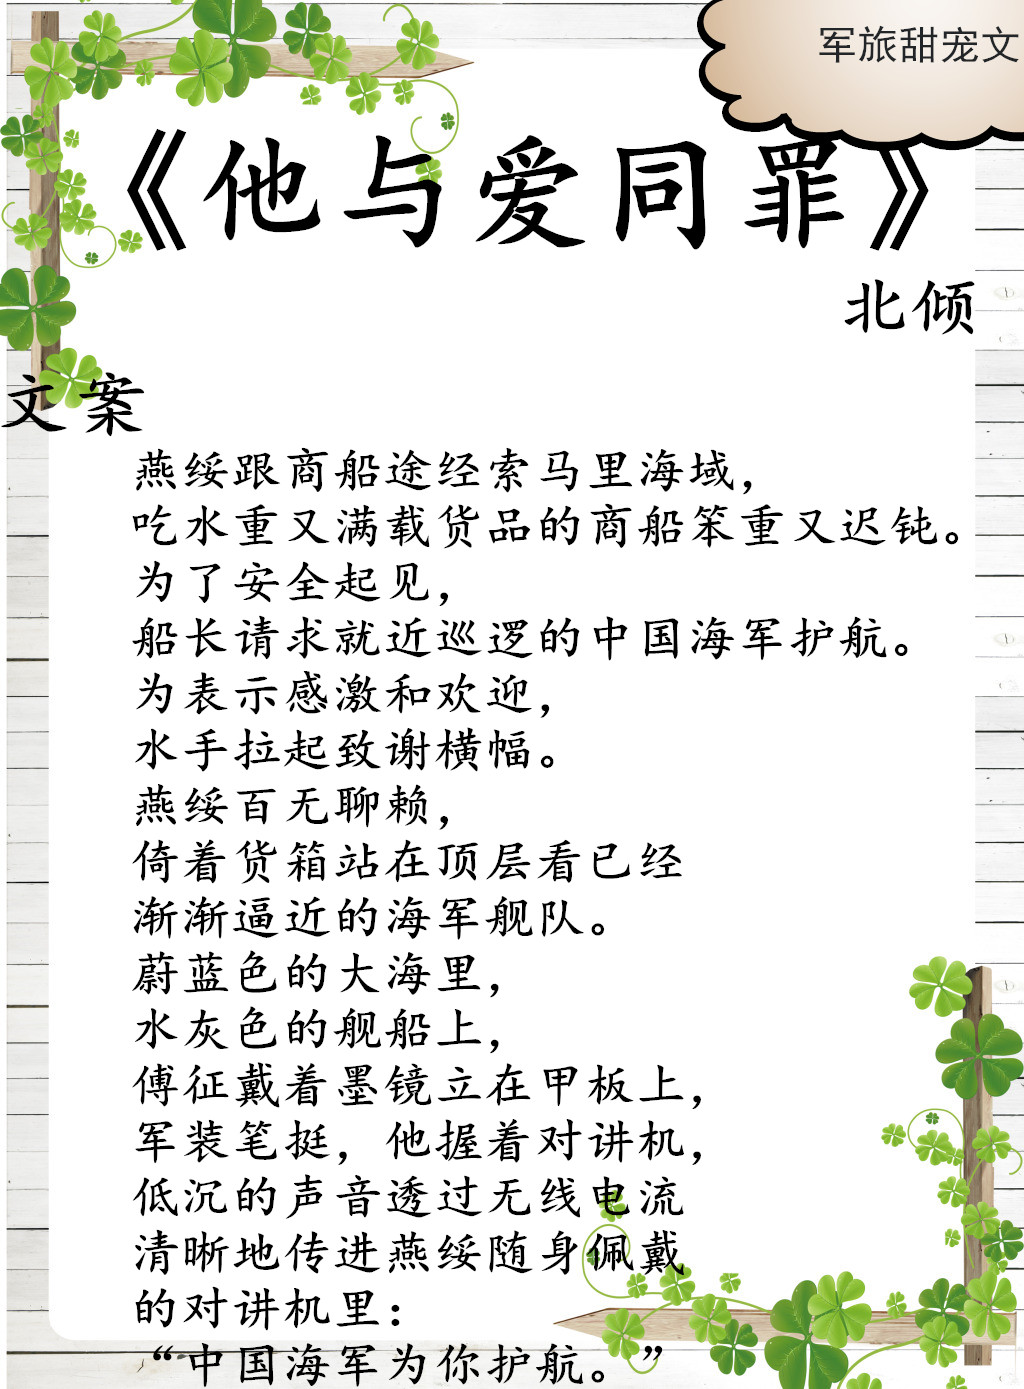 军旅甜宠文
《他与爱同罪》
北倾
文案
燕绥跟商船途经索马里海域，
吃水重又满载货品的商船笨重又迟钝。
为了安全起见，
船长请求就近巡逻的中国海军护航。
为表示感激和欢迎，
水手拉起致谢横幅。
燕绥百无聊赖，
倚着货箱站在顶层看已经
渐渐逼近的海军舰队。
蔚蓝色的大海里，
水灰色的舰船上，
傅征戴着墨镜立在甲板上，
军装笔挺，他握着对讲机，
低沉的声音透过无线电流
清晰地传进燕绥随身佩戴
的对讲机里：
“中国海军为你护航。”